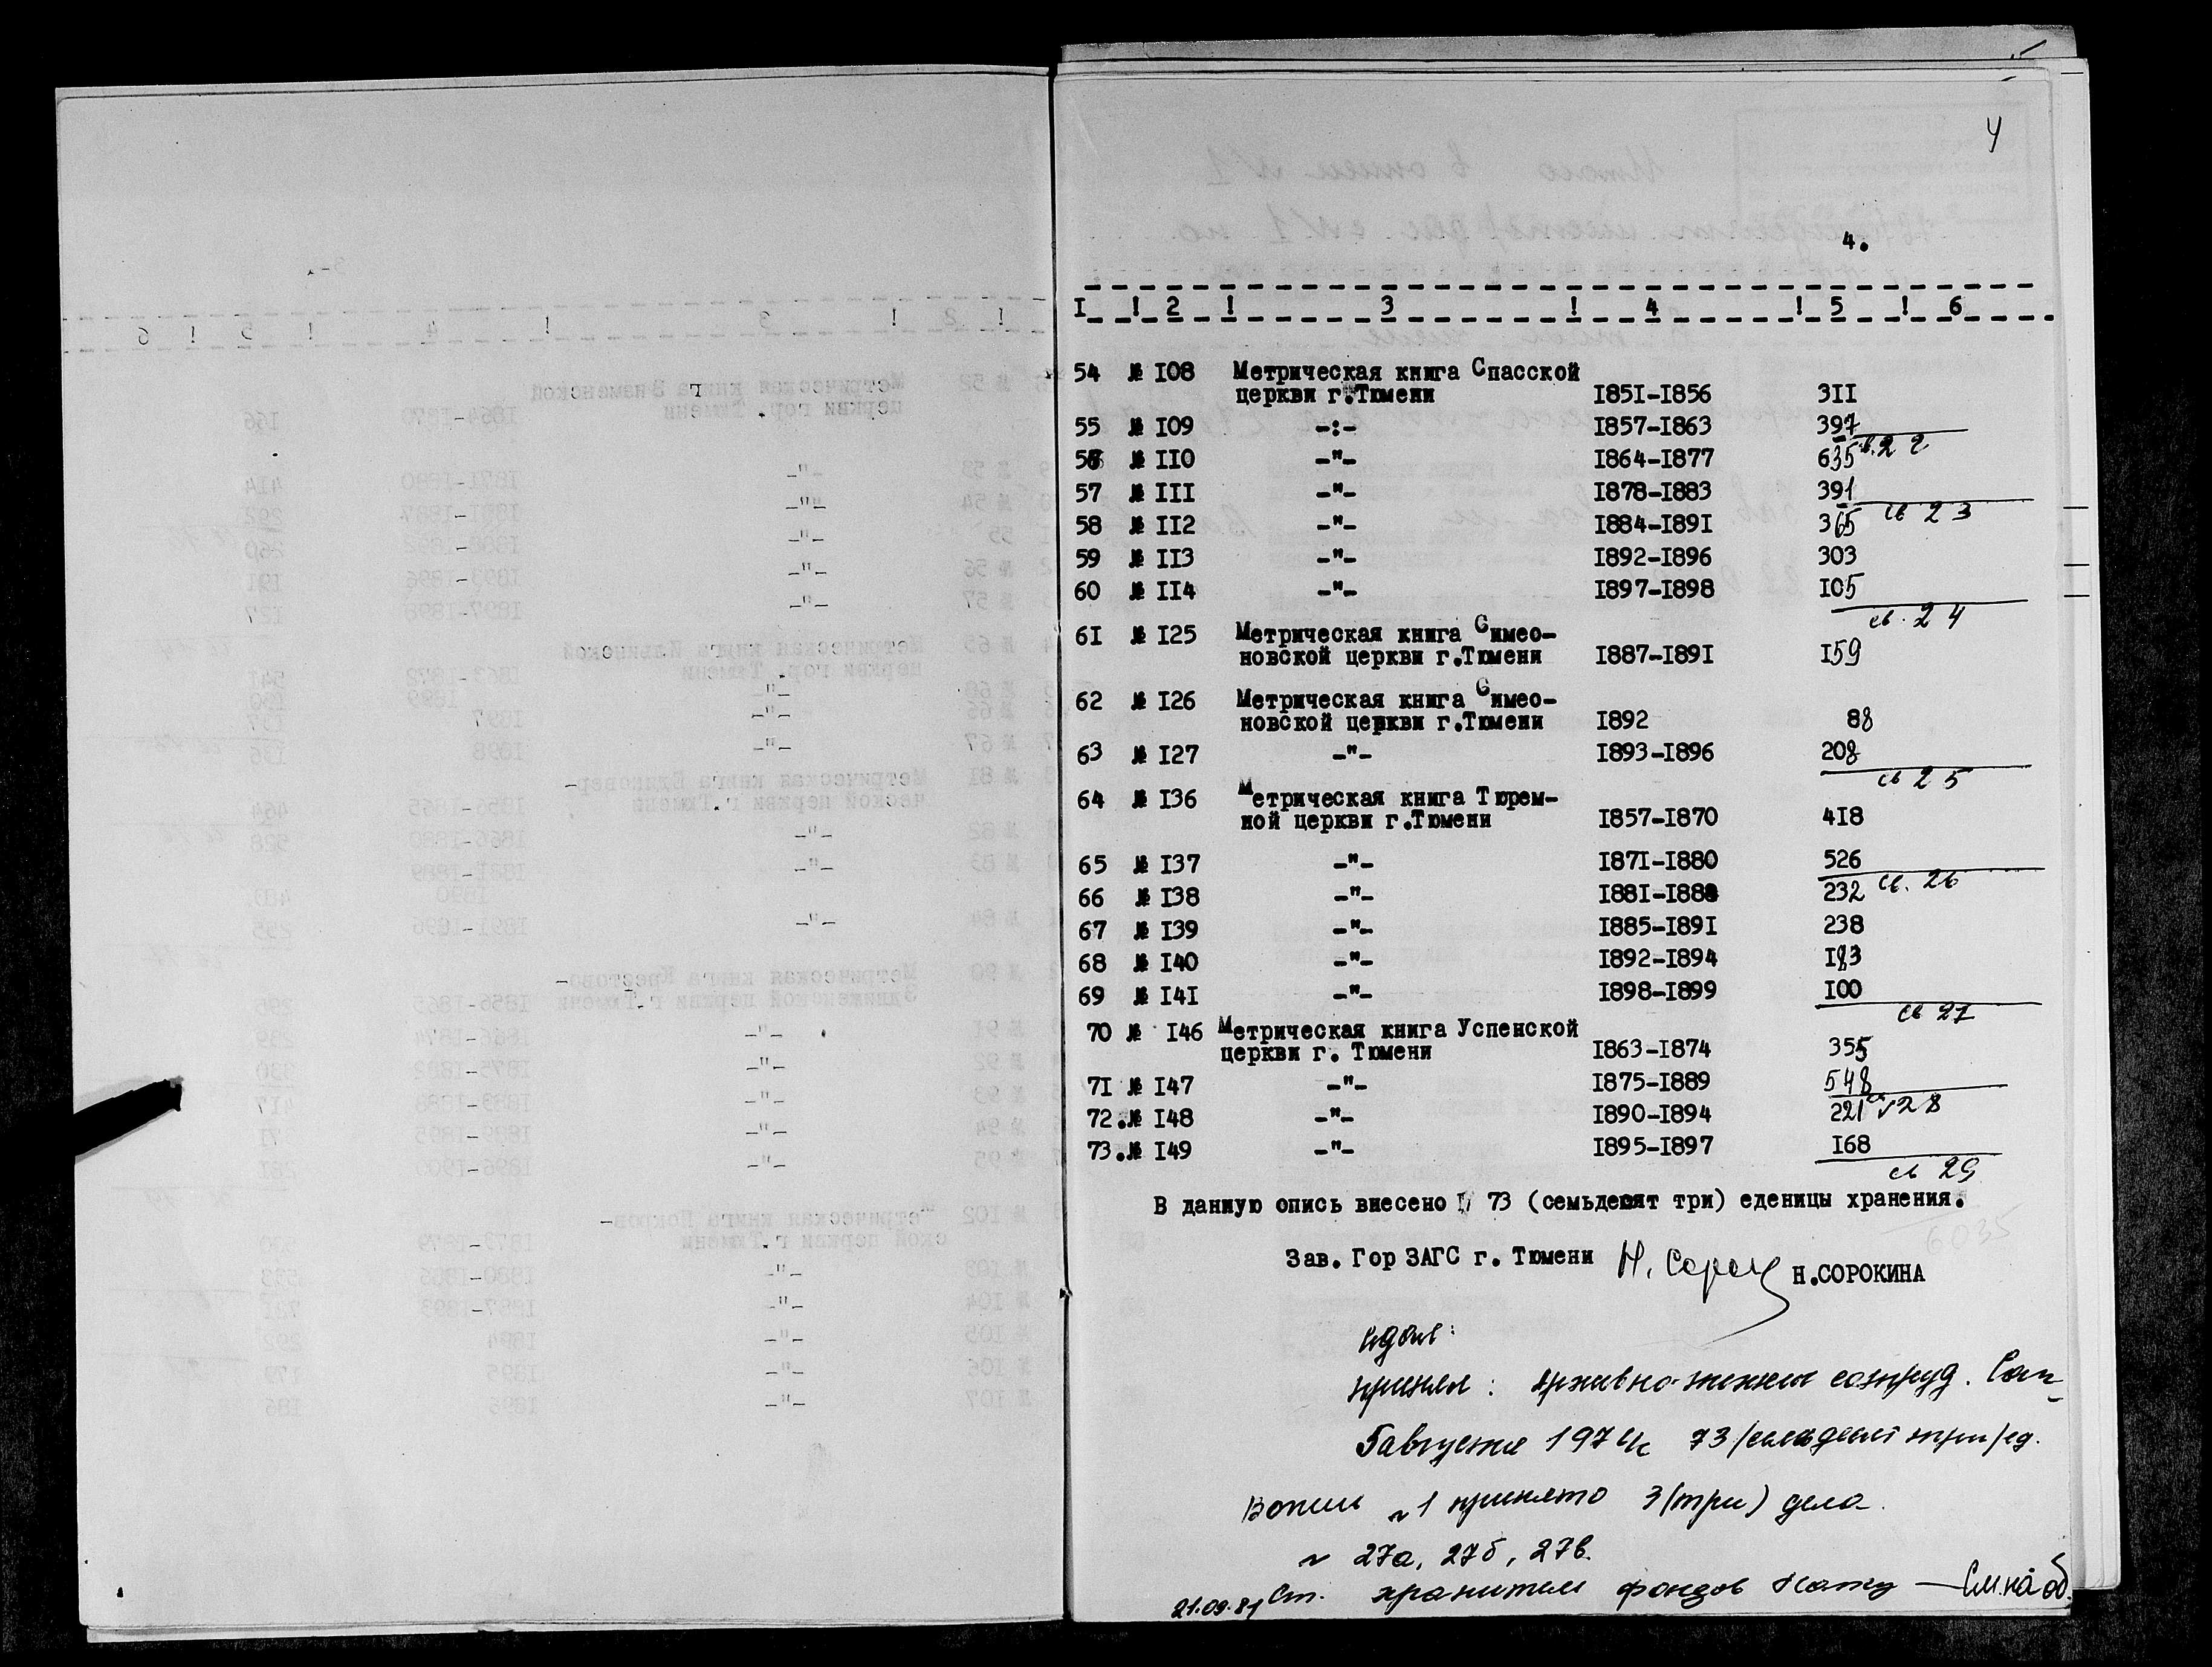 4
4.
I ! 2 ! 3 ! 4 ! 5 ! 6
54 № I08 Метрическая книга Спасской
церкви г.Тюмени I85I-I856 3II
55 № I09 -:- I857-I863 397
св. 22
56 № II0 -"- I864-I877 635
57 № III -"- I878-I883 391
св 23
58 № II2 -"- I884-I89I 365
59 № II3 -"- I892-I896 303
60 № II4 -"- I897-I898 I05
св. 24
6I № I25 Метрическая книга Симео-
новской церкви г.Тюмени I887-I89I I59
62 № I26 Метрическая книга Симео-
новской церкви г.Тюмени I892 88
63 № I27 -"- I893-I896 208
св 25
64 № I36 Метрическая книга Тюрем-
ной церкви г.Тюмени I857-I870 4I8
65 № I37 -"- I87I-I880 526
св. 26
66 № I38 -"- I88I-I884 232
67 № I39 -"- I885-I89I 238
68 № I40 -"- I892-I894 I83
69 № I4I -"- I898-I899 I00
св 27
70 № I46 Метрическая книга Успенской
церкви г. Тюмени I863-I874 355
7I № I47 -"- I875-I889 548
св 28
72.№ I48 -"- I890-I894 221
73.№ I49 -"- I895-I897 I68
св 29
В данную опись внесено 73 (семьдесят три) еденицы хранения.
6035
Зав. Гор ЗАГС г. Тюмени Н. Сорок Н.СОРОКИНА
сдал:
принял: архивно- сотруд.
5 августа 197 73 /семьдесят три/ ед.
В опись №1 принято 3 (три) дела.
№ 27а, 27б, 27в.
21.09.81 Ст. хранитель фондов — См. на об.